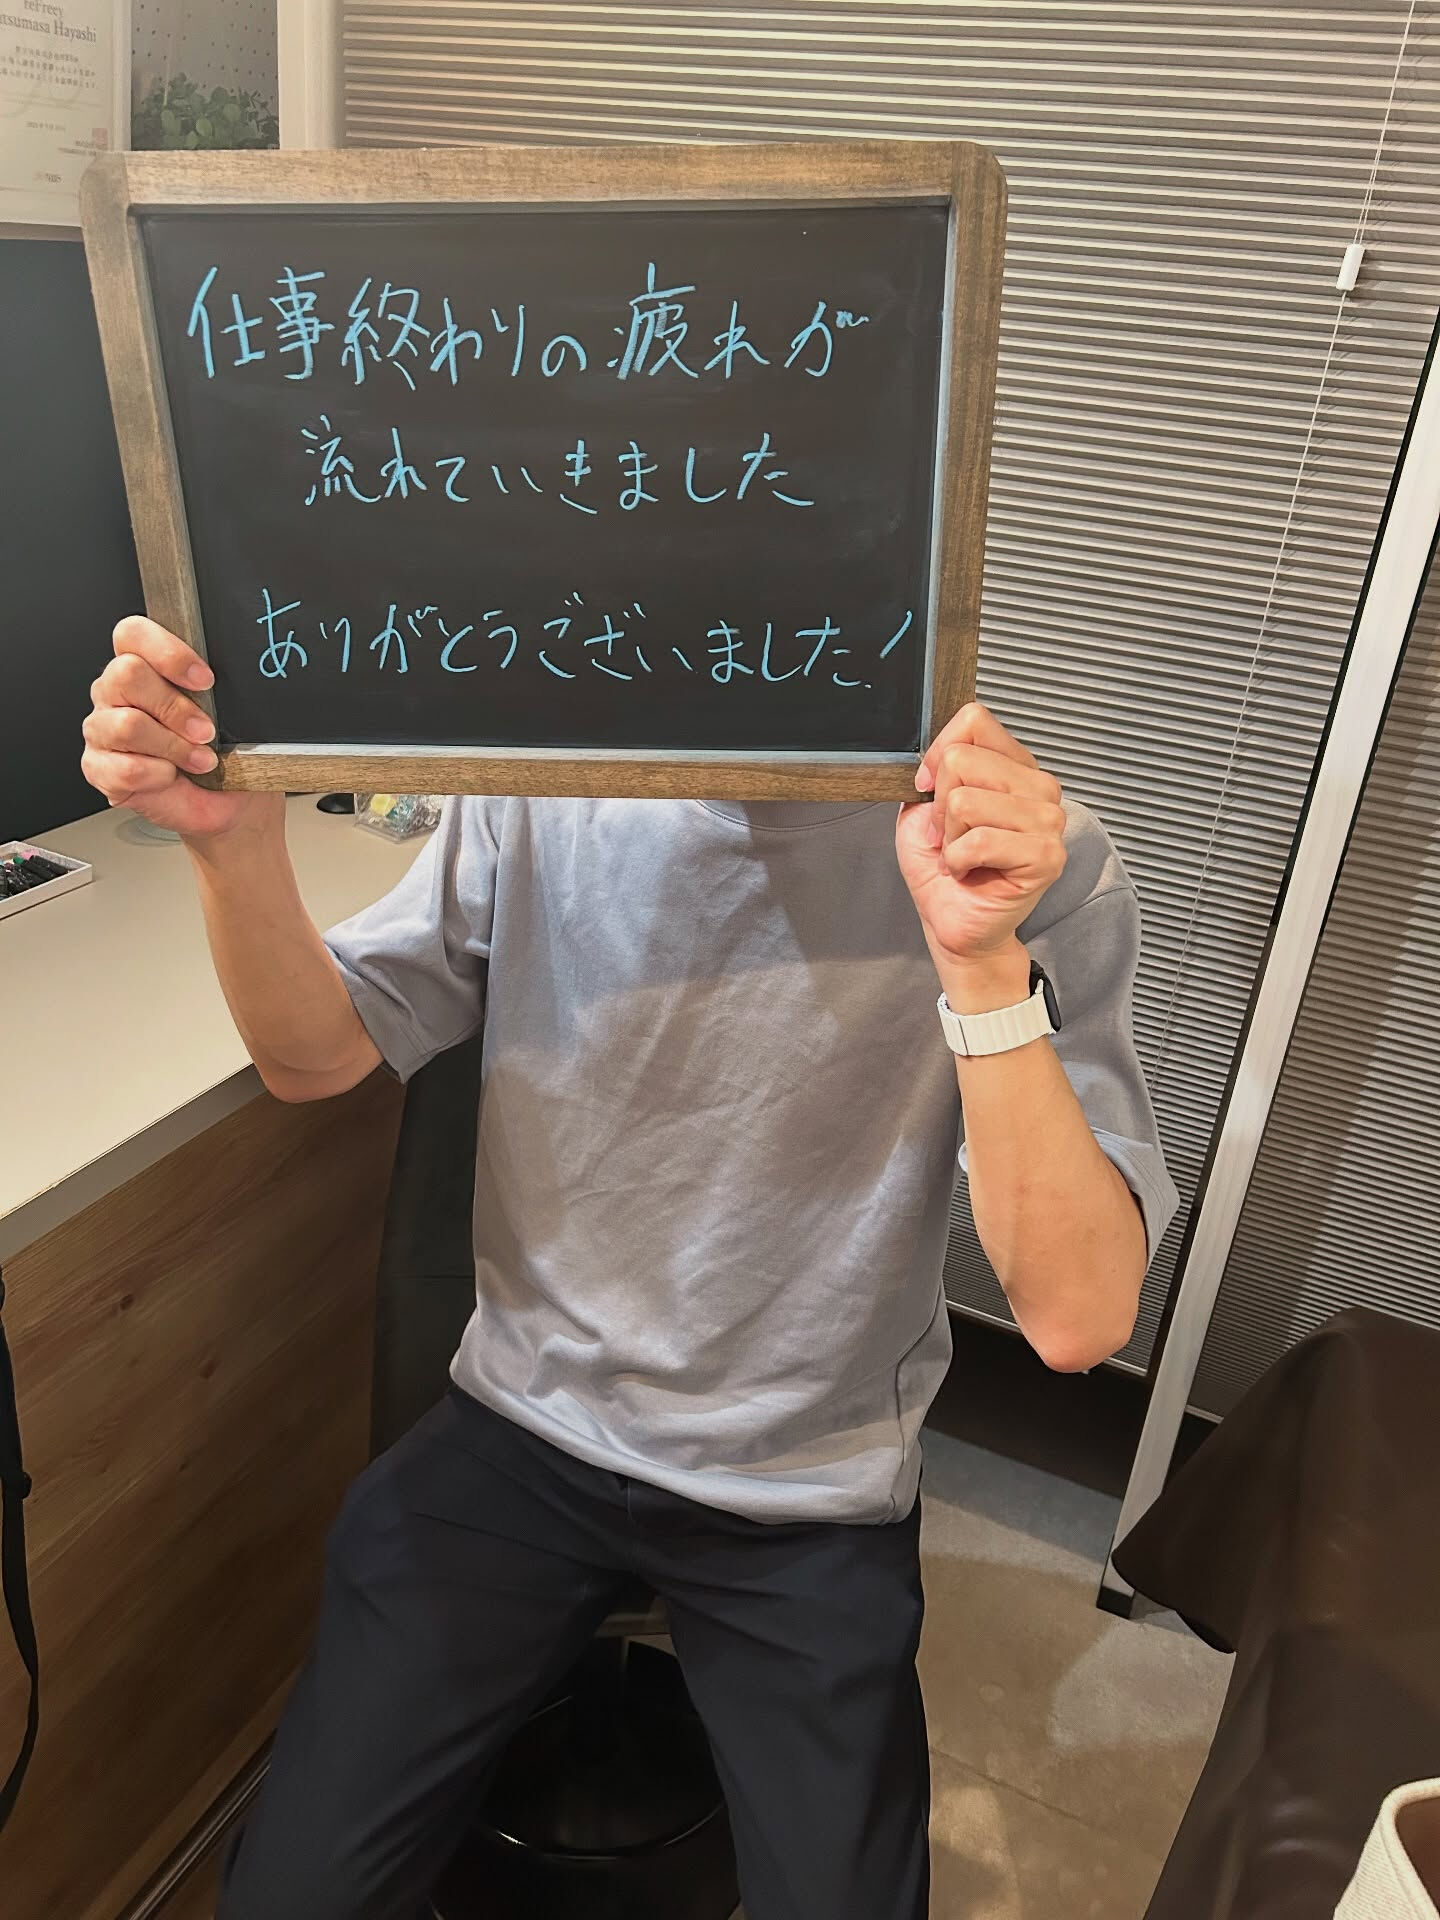 reFreey
tsumasa Hayashi
仕事終わりの疲れが
流れていきました
ありがとうございました!